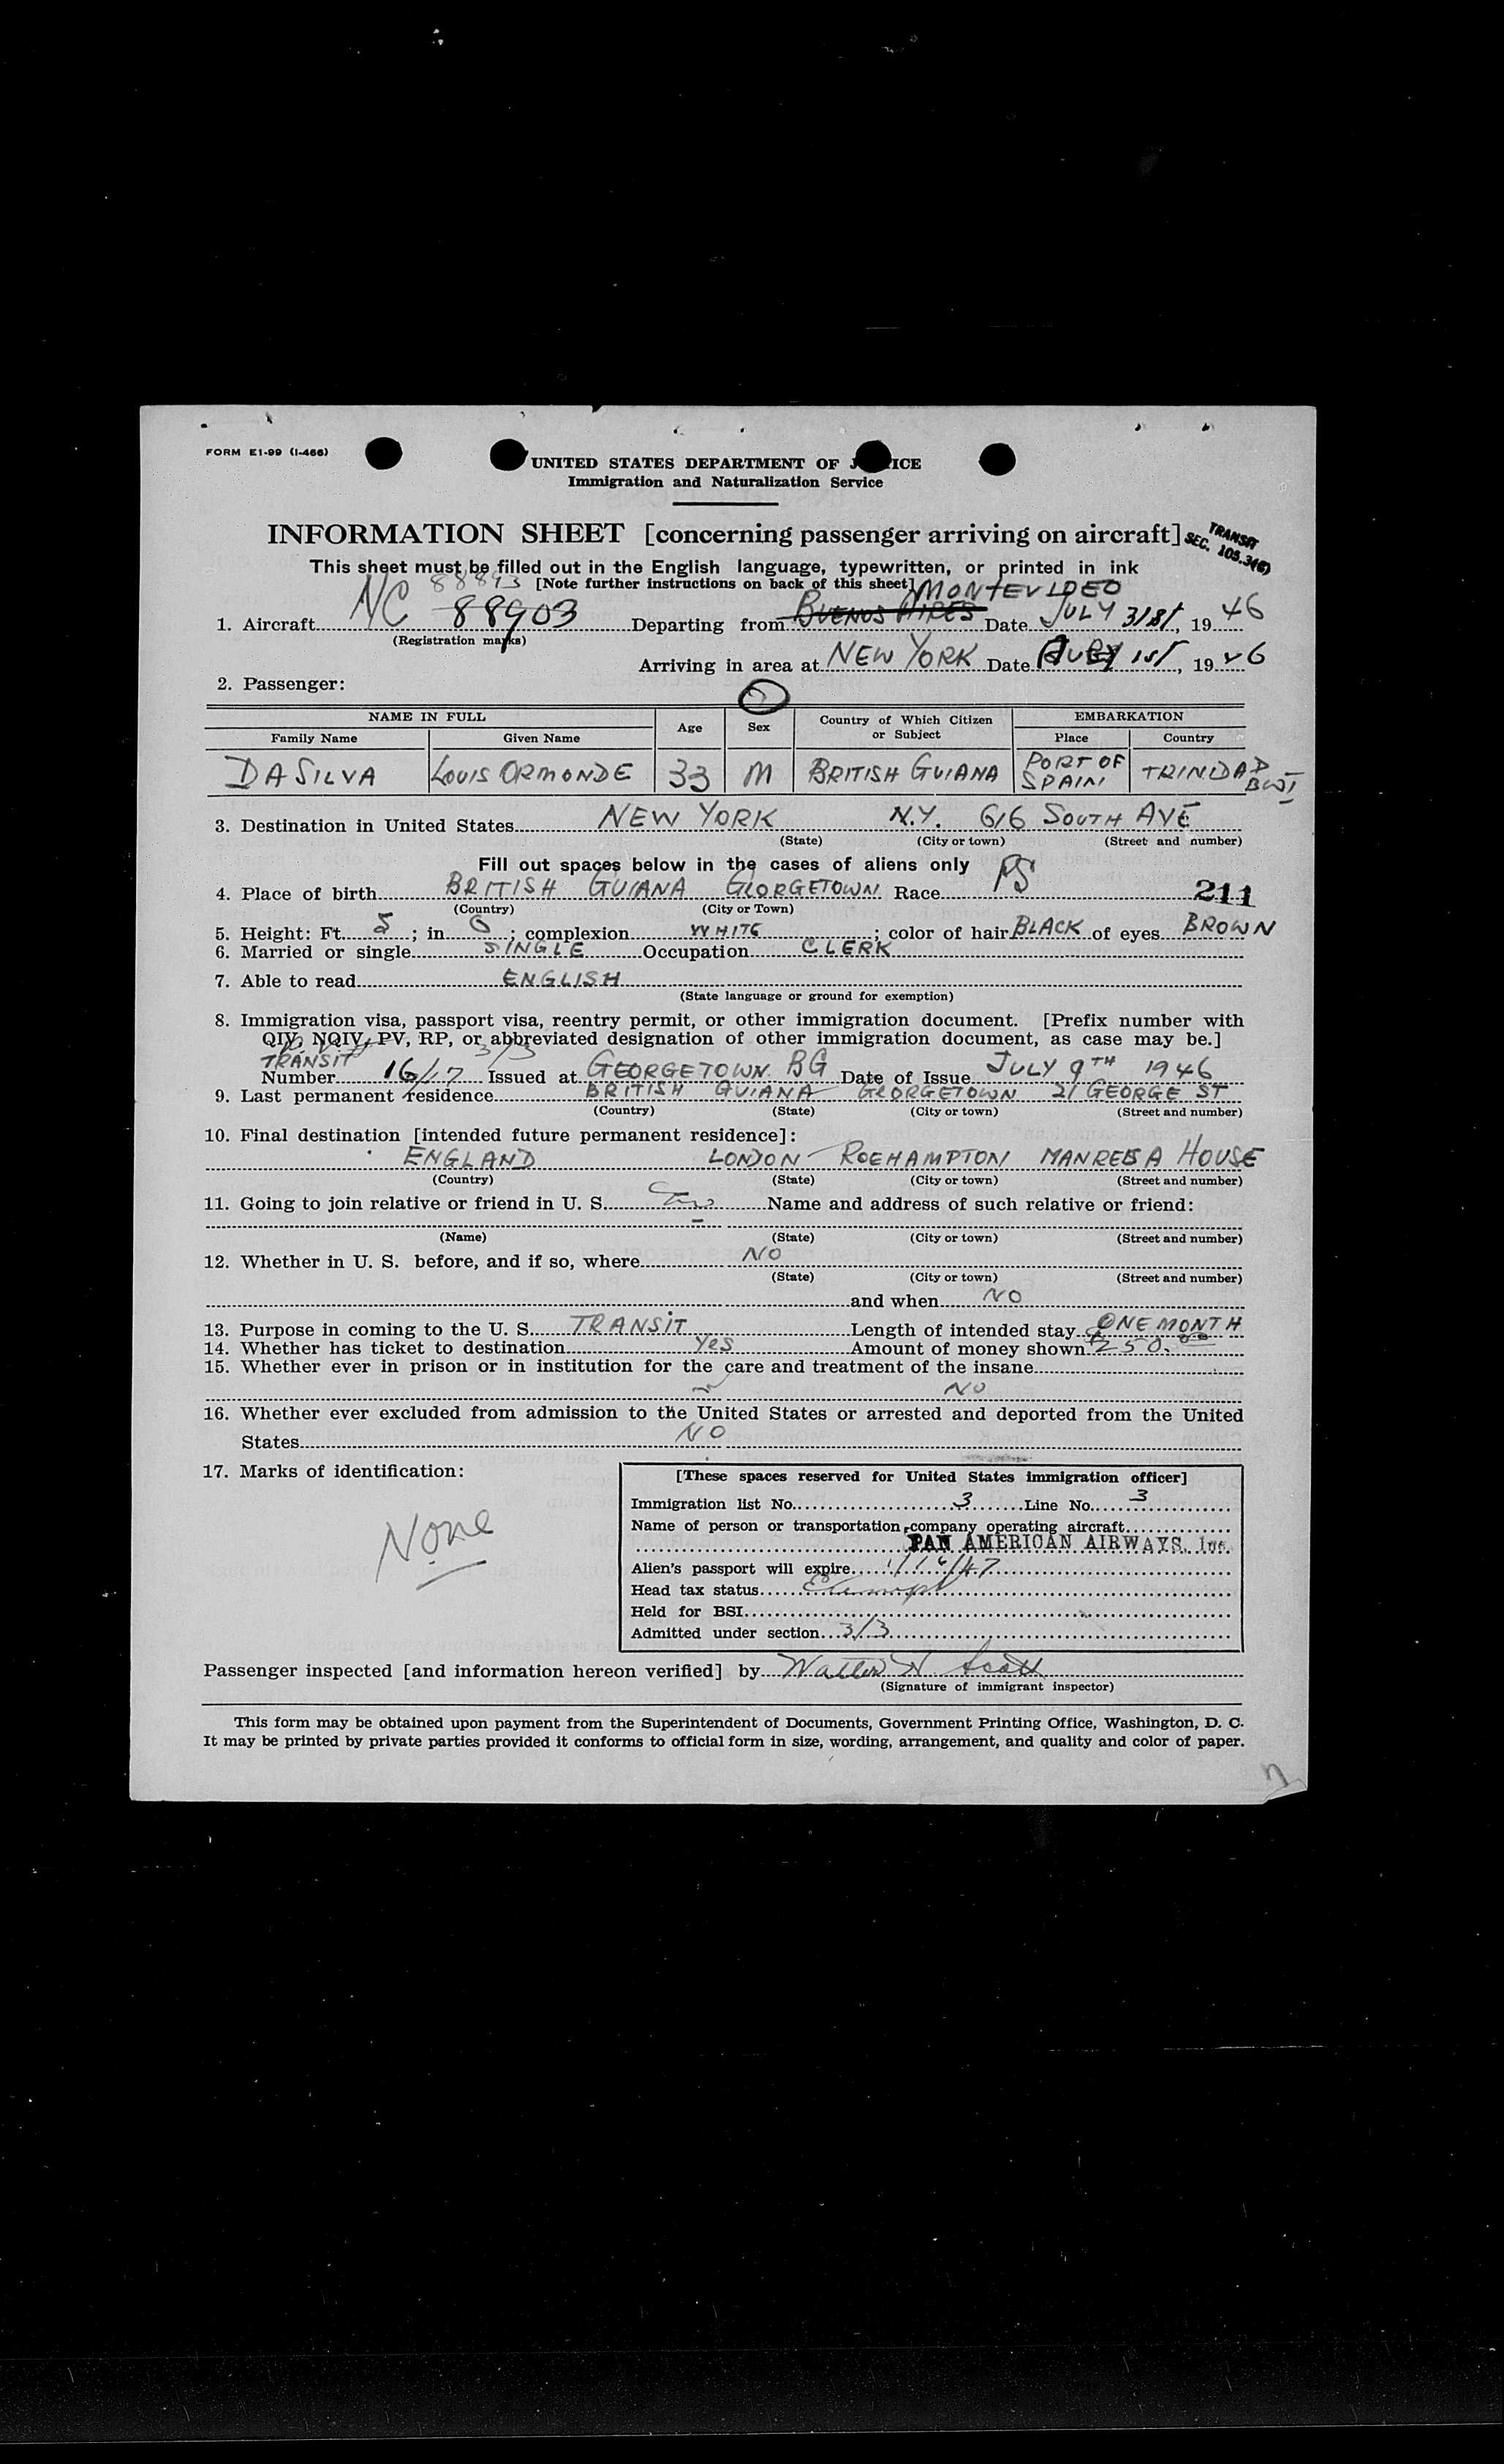 FORM E1-99 (I-466)
UNITED STATES DEPARTMENT OF J ICE
Immigration and Naturalization Service
INFORMATION SHEET [concerning passenger arriving on aircraft]
TRANSIT
SEC. 105.3(6)
This sheet must be filled out in the English language, typewritten, or printed in ink
88893 [Note further instructions on back of this sheet] MONTEVIDEO
1. Aircraft NC 88903 Departing from BUENOS AIRES Date JULY 31st, 1946
(Registration marks)
Arriving in area at NEW YORK Date 1st, 1946
2. Passenger:
NAME IN FULL Age Sex Country of Which Citizen or Subject EMBARKATION
Family Name Given Name Place Country
DASILVA LOUIS ORMONDE 33 M BRITISH GUIANA PORT OF SPAIN TRINIDAD BWI
3. Destination in United States NEW YORK N.Y. 616 SOUTH AVE
(State) (City or town) (Street and number)
Fill out spaces below in the cases of aliens only
4. Place of birth BRITISH GUIANA GEORGETOWN Race 211
(Country) (City or Town)
5. Height: Ft. 5; in 6; complexion WHITE; color of hair BLACK of eyes BROWN
6. Married or single SINGLE Occupation CLERK
7. Able to read ENGLISH
(State language or ground for exemption)
8. Immigration visa, passport visa, reentry permit, or other immigration document. [Prefix number with
QIV, NQIV, PV, RP, or abbreviated designation of other immigration document, as case may be.]
TRANSIT 3/3
Number 16/17 Issued at GEORGETOWN BG Date of Issue JULY 9TH 1946
9. Last permanent residence BRITISH GUIANA GEORGETOWN 21 GEORGE ST
(Country) (State) (City or town) (Street and number)
10. Final destination [intended future permanent residence]:
ENGLAND LONDON ROEHAMPTON MANRESA HOUSE
(Country) (State) (City or town) (Street and number)
11. Going to join relative or friend in U. S. Name and address of such relative or friend:
(Name) (State) (City or town) (Street and number)
12. Whether in U. S. before, and if so, where NO
(State) (City or town) (Street and number)
and when NO
13. Purpose in coming to the U. S. TRANSIT Length of intended stay ONE MONTH
14. Whether has ticket to destination Yes Amount of money shown $250.00
15. Whether ever in prison or in institution for the care and treatment of the insane
NO
16. Whether ever excluded from admission to the United States or arrested and deported from the United
States NO
17. Marks of identification:
None
[These spaces reserved for United States immigration officer]
Immigration list No. 3 Line No. 3
Name of person or transportation company operating aircraft
PAN AMERICAN AIRWAYS, Inc.
Alien's passport will expire 1/16/47
Head tax status Exempt
Held for BSI
Admitted under section 3/3
Passenger inspected [and information hereon verified] by Walter N Scott
(Signature of immigrant inspector)
This form may be obtained upon payment from the Superintendent of Documents, Government Printing Office, Washington, D. C.
It may be printed by private parties provided it conforms to official form in size, wording, arrangement, and quality and color of paper.